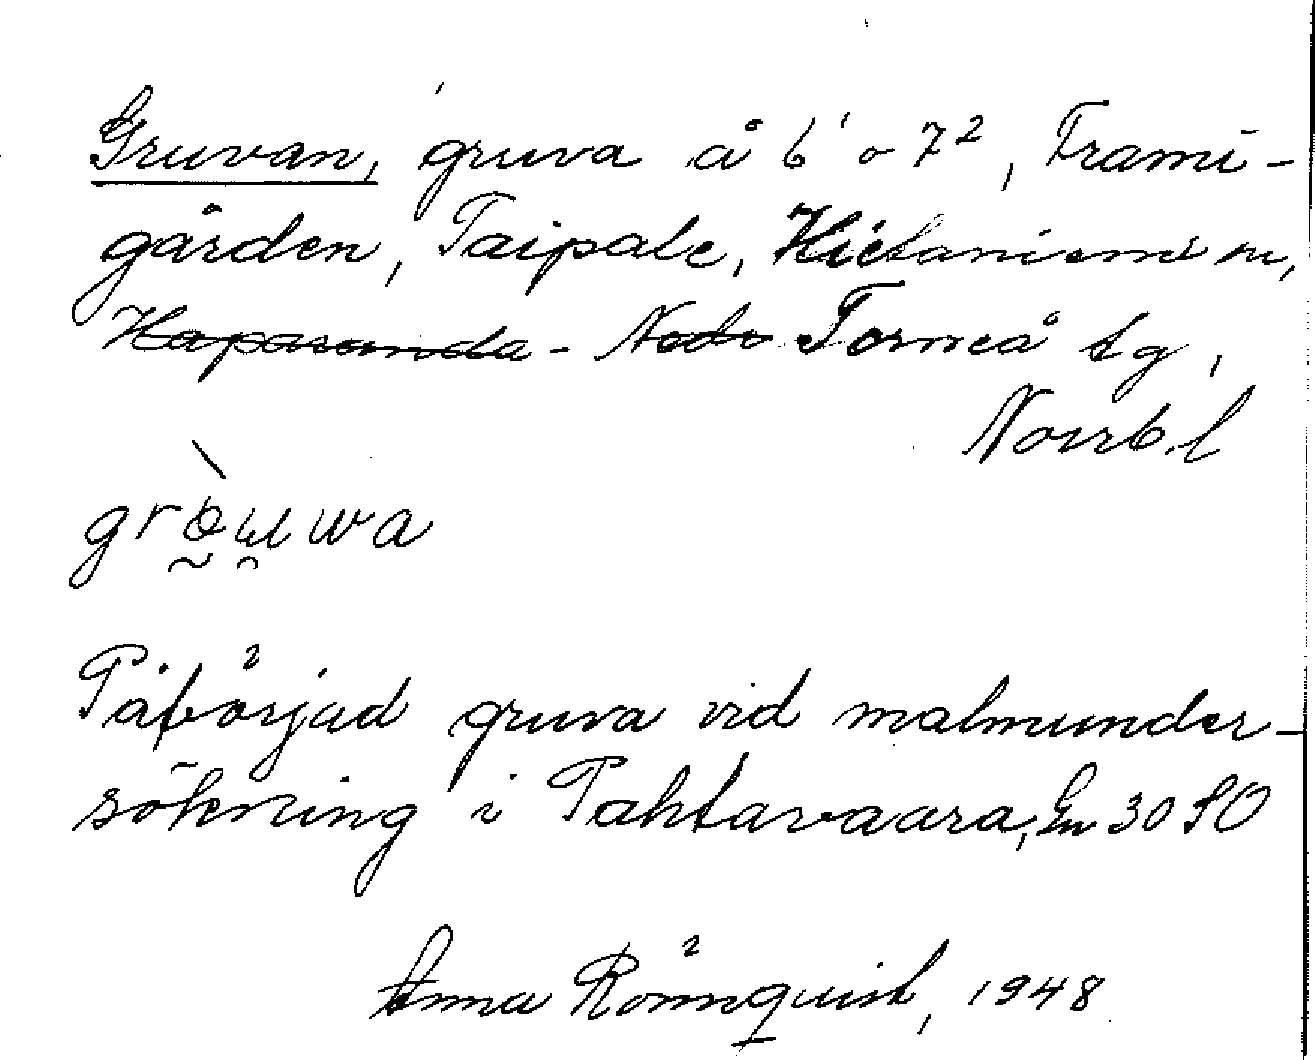 Gruvan, gruva å 6¹ o 7², Frami-
gården, Taipale, Hietaniemi sn,
Haparanda - Nedr Torneå tg,
Norrb.l
Påbörjad gruva vid malmunder-
sökning i Pahtavaara, Gn 30 SO
Anna Rönnquist, 1948